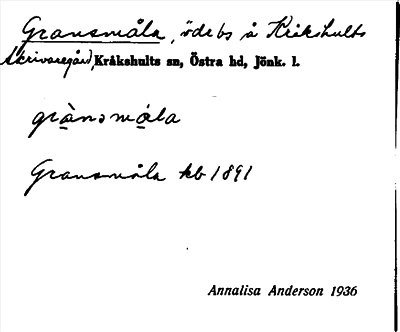 Gransmåla, ödebs å Kråkshults
Skrivaregård, Kråkshults sn, Östra hd, Jönk. l.
grànsmåla
Gransmåla kb 1891
Annalisa Anderson 1936